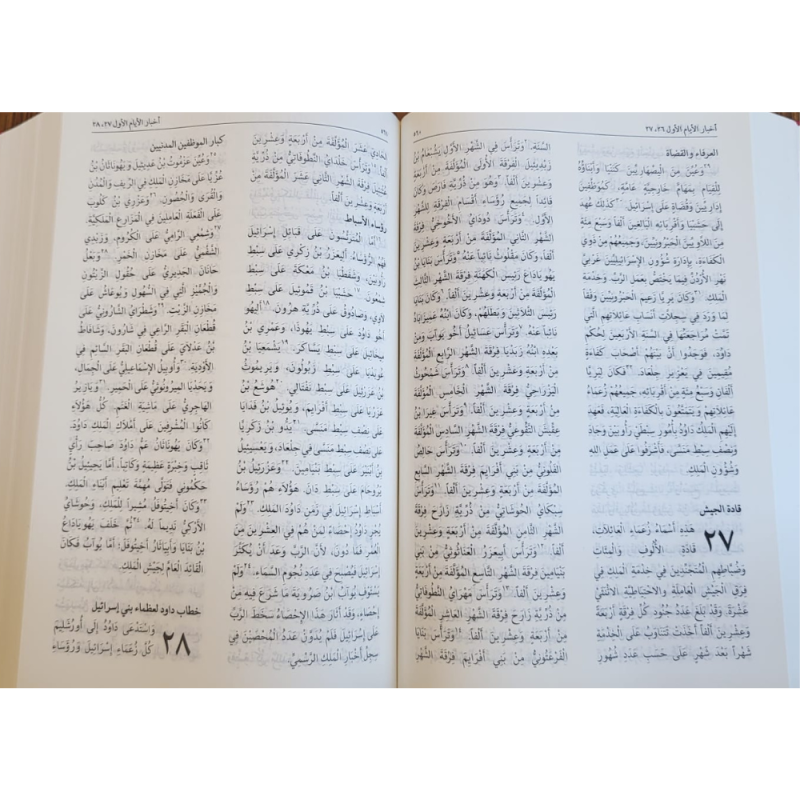 أخبار الأيام الأول ٢٦، ٢٧
٥٦٠
العرفاء والقضاة
٢٩وَعُيِّنَ مِنَ الْيِصْهَارِيِّينَ كَنَنْيَا وَأَبْنَاؤُهُ
لِلْقِيَامِ بِمَهَامَّ خَارِجِيَّةٍ عَامَّةٍ، كَمُوَظَّفِينَ
إِدَارِيِّينَ وَقُضَاةٍ عَلَى إِسْرَائِيلَ. ٣٠كَذَلِكَ عُهِدَ
إِلَى حَشَبْيَا وَأَقْرِبَائِهِ الْبَالِغِينَ أَلْفاً وَسَبْعَ مِئَةٍ
مِنَ اللَّاوِيِّينَ الْحَبْرُونِيِّينَ، وَجَمِيعُهُمْ مِنْ ذَوِي
الْكَفَاءَةِ، بِإِدَارَةِ شُؤُونِ الإِسْرَائِيلِيِّينَ غَرْبِيَّ
نَهْرِ الأُرْدُنِّ فِيمَا يَخْتَصُّ بِعَمَلِ الرَّبِّ وَخِدْمَةِ
الْمَلِكِ. ٣١وَكَانَ يَرِيَّا زَعِيمَ الْحَبْرُونِيِّينَ وَفْقاً
لِمَا وَرَدَ فِي سِجِلَّاتِ أَنْسَابِ عَائِلاتِهِمِ الَّتِي
تَمَّتْ مُرَاجَعَتُهَا فِي السَّنَةِ الأَرْبَعِينَ لِحُكْمِ
دَاوُدَ، فَوَجَدُوا أَنَّ بَيْنَهُمْ أَصْحَابَ كَفَاءَةٍ
مُقِيمِينَ فِي يَعْزِيرَ جِلْعَادَ. ٣٢فَكَانَ لِيَرِيَّا
أَلْفَانِ وَسَبْعُ مِئَةٍ مِنْ أَقْرِبَائِهِ، جَمِيعُهُمْ زُعَمَاءُ
عَائِلاتِهِمْ وَيَتَمَتَّعُونَ بِالْكَفَاءَةِ الْعَالِيَةِ، فَعَهِدَ
إِلَيْهِمِ الْمَلِكُ دَاوُدُ بِأُمُورِ سِبْطَيْ رَأُوبَيْنَ وَجَادَ
وَنِصْفِ سِبْطِ مَنَسَّى، فَأَشْرَفُوا عَلَى عَمَلِ اللهِ
وَشُؤُونِ الْمَلِكِ.
قادة الجيش
٢٧ هَذِهِ أَسْمَاءُ زُعَمَاءِ الْعَائِلاتِ،
قَادَةِ الأُلُوفِ وَالْمِئَاتِ
وَضُبَّاطِهِمِ الْمُتَجَنِّدِينَ فِي خِدْمَةِ الْمَلِكِ،
فِرَقِ الْجَيْشِ الْعَامِلَةِ وَالاحْتِيَاطِيَّةِ الاثْنَتَيْ
عَشْرَةَ. وَقَدْ بَلَغَ عَدَدُ جُنُودِ كُلِّ فِرْقَةٍ أَرْبَعَةً
وَعِشْرِينَ أَلْفاً أَخَذَتْ تَتَنَاوَبُ عَلَى الْخِدْمَةِ
شَهْراً بَعْدَ شَهْرٍ عَلَى حَسَبِ عَدَدِ شُهُورِ
السَّنَةِ. ٢وَتَرَأَّسَ فِي الشَّهْرِ الأَوَّلِ يَشُبْعَامُ بْنُ
زَبْدِيئِيلَ الْفِرْقَةَ الأُولَى الْمُؤَلَّفَةَ مِنْ أَرْبَعَةٍ
وَعِشْرِينَ أَلْفاً. ٣وَهُوَ مِنْ ذُرِّيَّةِ فَارَصَ وَكَانَ
قَائِداً لِجَمِيعِ رُؤَسَاءِ أَقْسَامِ الْفِرْقَةِ لِلشَّهْرِ
الأَوَّلِ. ٤وَتَرَأَّسَ دُودَايُ الأَخُوخِيُّ فِرْقَةَ
الشَّهْرِ الثَّانِي الْمُؤَلَّفَةَ مِنْ أَرْبَعَةٍ وَعِشْرِينَ
أَلْفاً، وَكَانَ مَقْلُوثُ نَائِباً عَنْهُ. ٥وَتَرَأَّسَ بَنَايَا بْنُ
يَهُويَادَاعَ رَئِيسُ الْكَهَنَةِ فِرْقَةَ الشَّهْرِ الثَّالِثِ
الْمُؤَلَّفَةَ مِنْ أَرْبَعَةٍ وَعِشْرِينَ أَلْفاً. ٦وَكَانَ بَنَايَا
رَئِيسَ الثَّلاثِينَ وَبَطَلَهُمْ، وَكَانَ ابْنُهُ عَمِّيزَابَادُ
نَائِباً عَنْهُ. ٧وَتَرَأَّسَ عَسَائِيلُ أَخُو يُوآبَ وَمِنْ
بَعْدِهِ ابْنُهُ زَبَدْيَا فِرْقَةَ الشَّهْرِ الرَّابِعِ الْمُؤَلَّفَةَ
مِنْ أَرْبَعَةٍ وَعِشْرِينَ أَلْفاً. ٨وَتَرَأَّسَ شَمْحُوثُ
الْيَزْرَاحِيُّ فِرْقَةَ الشَّهْرِ الْخَامِسِ الْمُؤَلَّفَةَ
مِنْ أَرْبَعَةٍ وَعِشْرِينَ أَلْفاً. ٩وَتَرَأَّسَ عِيرَا بْنُ
عِقِّيشَ التَّقُوعِيُّ فِرْقَةَ الشَّهْرِ السَّادِسِ الْمُؤَلَّفَةَ
مِنْ أَرْبَعَةٍ وَعِشْرِينَ أَلْفاً. ١٠وَتَرَأَّسَ حَالِصُ
الْفَلُونِيُّ مِنْ بَنِي أَفْرَايِمَ فِرْقَةَ الشَّهْرِ السَّابِعِ
الْمُؤَلَّفَةَ مِنْ أَرْبَعَةٍ وَعِشْرِينَ أَلْفاً. ١١وَتَرَأَّسَ
سِبْكَايُ الْحُوشَاتِيُّ مِنْ ذُرِّيَّةِ زَارَحَ فِرْقَةَ
الشَّهْرِ الثَّامِنِ الْمُؤَلَّفَةَ مِنْ أَرْبَعَةٍ وَعِشْرِينَ
أَلْفاً. ١٢وَتَرَأَّسَ أَبِيعَزَرُ الْعَنَاثُوثِيُّ مِنْ بَنِي
بَنْيَامِينَ فِرْقَةَ الشَّهْرِ التَّاسِعِ الْمُؤَلَّفَةَ مِنْ أَرْبَعَةٍ
وَعِشْرِينَ أَلْفاً. ١٣وَتَرَأَّسَ مَهْرَايُ النَّطُوفَاتِيُّ
مِنْ ذُرِّيَّةِ زَارَحَ فِرْقَةَ الشَّهْرِ الْعَاشِرِ الْمُؤَلَّفَةَ
مِنْ أَرْبَعَةٍ وَعِشْرِينَ أَلْفاً. ١٤وَتَرَأَّسَ بَنَايَا
الْفَرْعَثُونِيُّ مِنْ بَنِي أَفْرَايِمَ فِرْقَةَ الشَّهْرِ
٥٦١
أخبار الأيام الأول ٢٧، ٢٨
الْحَادِي عَشَرَ الْمُؤَلَّفَةَ مِنْ أَرْبَعَةٍ وَعِشْرِينَ
أَلْفاً. ١٥وَتَرَأَّسَ خَلْدَايُ النَّطُوفَاتِيُّ مِنْ ذُرِّيَّةِ
عُثْنِيئِيلَ فِرْقَةَ الشَّهْرِ الثَّانِي عَشَرَ الْمُؤَلَّفَةَ مِنْ
أَرْبَعَةٍ وَعِشْرِينَ أَلْفاً.
رؤساء الأسباط
١٦أَمَّا الْمُتَرَئِّسُونَ عَلَى قَبَائِلِ إِسْرَائِيلَ
فَهُمُ الرُّؤَسَاءُ: أَلِيعَزَرُ بْنُ زِكْرِي عَلَى سِبْطِ
رَأُوبَيْنَ، وَشَفَطْيَا بْنُ مَعْكَةَ عَلَى سِبْطِ
شِمْعُونَ. ١٧حَشَبْيَا بْنُ قَمُوئِيلَ عَلَى سِبْطِ
لاوِي، وَصَادُوقُ عَلَى ذُرِّيَّةِ هرُونَ. ١٨أَلِيهُو
أَخُو دَاوُدَ عَلَى سِبْطِ يَهُوذَا، وَعَمْرِي بْنُ
مِيخَائِيلَ عَلَى سِبْطِ يَسَّاكَرَ. ١٩يَشْمَعِيَا بْنُ
عُوبَدْيَا عَلَى سِبْطِ زَبُولُونَ، وَيَرِيمُوثُ
بْنُ عَزَرْئِيلَ عَلَى سِبْطِ نَفْتَالِي. ٢٠هُوشَعُ بْنُ
عَزَزْيَا عَلَى سِبْطِ أَفْرَايِمَ، وَيُوئِيلُ بْنُ فَدَايَا
عَلَى نِصْفِ سِبْطِ مَنَسَّى. ٢١يَدُّو بْنُ زَكَرِيَّا
عَلَى نِصْفِ سِبْطِ مَنَسَّى فِي جِلْعَادَ، وَيَعْسِيئِيلُ
بْنُ أَبْنَيْرَ عَلَى سِبْطِ بَنْيَامِينَ. ٢٢وَعَزَرْئِيلُ بْنُ
يَرُوحَامَ عَلَى سِبْطِ دَانَ. هَؤُلاءِ هُمْ رُؤَسَاءُ
أَسْبَاطِ إِسْرَائِيلَ فِي زَمَنِ دَاوُدَ الْمَلِكِ. ٢٣وَلَمْ
يُجْرِ دَاوُدُ إِحْصَاءً لِمَنْ هُمْ فِي الْعِشْرِينَ مِنَ
الْعُمْرِ فَمَا دُونُ، لأَنَّ الرَّبَّ وَعَدَ أَنْ يُكَثِّرَ
إِسْرَائِيلَ فَيُصْبِحَ فِي عَدَدِ نُجُومِ السَّمَاءِ. ٢٤وَلَمْ
يَسْتَوْفِ يُوآبُ ابْنُ صُرُويَةَ مَا شَرَعَ فِيهِ مِنْ
إِحْصَاءٍ، وَقَدْ أَثَارَ هَذَا الإِحْصَاءُ سَخَطَ الرَّبِّ
عَلَى إِسْرَائِيلَ، فَلَمْ يُدَوَّنْ عَدَدُ الْمُحْصَيْنَ فِي
سِجِلِّ أَخْبَارِ الْمَلِكِ الرَّسْمِيِّ.
كبار الموظفين المدنيين
٢٥وَعُيِّنَ عَزْمُوثُ بْنُ عَدِيئِيلَ وَيَهُونَاثَانُ بْنُ
عُزِّيَّا عَلَى مَخَازِنِ الْمَلِكِ فِي الرِّيفِ وَالْمُدُنِ
وَالْقُرَى وَالْحُصُونِ. ٢٦وَعَزْرِي بْنُ كَلُوبَ
عَلَى الْفَعَلَةِ الْعَامِلِينَ فِي الْمَزَارِعِ الْمَلَكِيَّةِ.
٢٧وَشِمْعِي الرَّامِيُّ عَلَى الْكُرُومِ، وَزَبْدِي
الشَّفْمِيُّ عَلَى مَخَازِنِ الْخَمْرِ. ٢٨وَبَعْلُ
حَانَانَ الْجَدِيرِيُّ عَلَى حُقُولِ الزَّيْتُونِ
وَالْجُمَّيْزِ الَّتِي فِي السُّهُولِ وَيُوعَاشُ عَلَى
مَخَازِنِ الزَّيْتِ. ٢٩وَشَطْرَايُ الشَّارُونِيُّ عَلَى
قُطْعَانِ الْبَقَرِ الرَّاعِي فِي شَارُونَ، وَشَافَاطُ
بْنُ عَدْلايَ عَلَى قُطْعَانِ الْبَقَرِ السَّائِمِ فِي
الأَوْدِيَةِ. ٣٠وَأُوبِيلُ الإِسْمَاعِيلِيُّ عَلَى الْجِمَالِ،
وَيَحَدْيَا الْمِيرُونُوثِيُّ عَلَى الْحَمِيرِ. ٣١وَيَازِيزُ
الْهَاجَرِيُّ عَلَى مَاشِيَةِ الْغَنَمِ. كُلُّ هَؤُلاءِ
كَانُوا الْمُشْرِفِينَ عَلَى أَمْلاكِ الْمَلِكِ دَاوُدَ.
٣٢وَكَانَ يَهُونَاثَانُ عَمُّ دَاوُدَ صَاحِبَ رَأْيٍ
ثَاقِبٍ وَخِبْرَةٍ عَظِيمَةٍ وَكَاتِباً. أَمَّا يَحِيئِيلُ بْنُ
حَكْمُونِي فَتَوَلَّى مُهِمَّةَ تَعْلِيمِ أَبْنَاءِ الْمَلِكِ.
٣٣وَكَانَ أَخِيتُوفَلُ مُشِيراً لِلْمَلِكِ، وَحُوشَايُ
الأَرْكِيُّ نَدِيماً لَهُ. ٣٤ثُمَّ خَلَفَ يَهُويَادَاعُ
بْنُ بَنَايَا وَأَبِيَاثَارُ أَخِيتُوفَلَ؛ أَمَّا يُوآبُ فَكَانَ
الْقَائِدَ الْعَامَّ لِجَيْشِ الْمَلِكِ.
خطاب داود لعظماء بني إسرائيل
٢٨ وَاسْتَدْعَى دَاوُدُ إِلَى أُورُشَلِيمَ
كُلَّ زُعَمَاءِ إِسْرَائِيلَ وَرُؤَسَاءِ